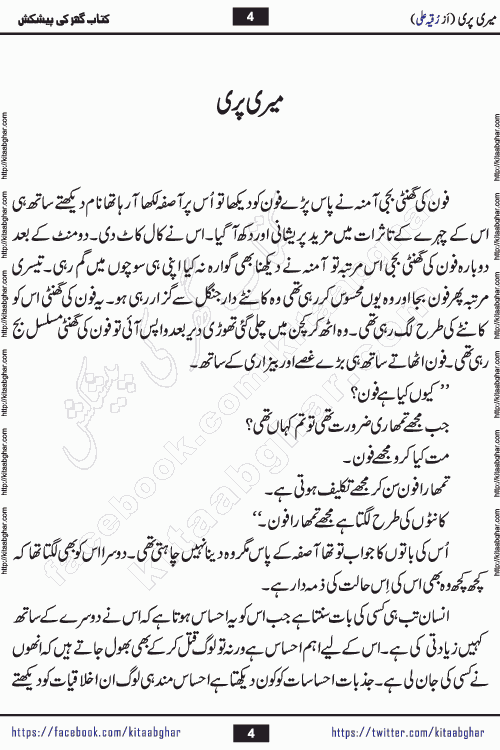 میری پری (از رقیہ علی)
4
کتاب گھر کی پیشکش
میری پری
فون کی گھنٹی بجی آمنہ نے پاس پڑے فون کو دیکھا تو اُس پر آصفہ لکھا آ رہا تھا نام دیکھتے ساتھ ہی
اس کے چہرے کے تاثرات میں مزید پریشانی اور دکھ آ گیا۔ اس نے کال کاٹ دی۔ دو منٹ کے بعد
دوبارہ فون کی گھنٹی بجی اس مرتبہ تو آمنہ نے دیکھنا بھی گوارہ نہ کیا اپنی ہی سوچوں میں گم رہی۔ تیسری
مرتبہ پھر فون بجا اور وہ یوں محسوس کر رہی تھی وہ کانٹے دار جنگل سے گزار رہی ہو۔ یہ فون کی گھنٹی اس کو
کانٹے کی طرح لگ رہی تھی۔ وہ اٹھ کر کچن میں چلی گئی تھوڑی دیر بعد واپس آئی تو فون کی گھنٹی مسلسل بج
رہی تھی۔ فون اٹھاتے ساتھ ہی بڑے غصے اور بیزاری کے ساتھ۔
’’کیوں کیا ہے فون؟
جب مجھے تمھاری ضرورت تھی تو تم کہاں تھی؟
مت کیا کرو مجھے فون۔
تمھارا فون سن کر مجھے تکلیف ہوتی ہے۔
کانٹوں کی طرح لگتا ہے مجھے تمھارا فون۔‘‘
اُس کی باتوں کا جواب تو تھا آصفہ کے پاس مگر وہ دینا نہیں چاہتی تھی۔ دوسرا اس کو بھی لگتا تھا کہ
کچھ کچھ وہ بھی اس کی اِس حالت کی ذمہ دار ہے۔
انسان تب ہی کسی کی بات سنتا ہے جب اس کو یہ احساس ہوتا ہے کہ اس نے دوسرے کے ساتھ
کہیں زیادتی کی ہے۔ اس کے لیے اہم احساس ہے ورنہ تو لوگ قتل کر کے بھی بھول جاتے ہیں کہ انھوں
نے کسی کی جان لی ہے۔ جذبات احساسات کو کون دیکھتا ہے احساس مند ہی لوگ ان اخلاقیات کو دیکھتے
https://facebook.com/kitaabghar
4
https://twitter.com/kitaabghar
http://kitaabghar.com
http://kitaabghar.com
http://kitaabghar.com
http://kitaabghar.com
http://kitaabghar.com
http://kitaabghar.com
http://kitaabghar.com
http://kitaabghar.com
http://kitaabghar.com
http://kitaabghar.com
http://kitaabghar.com
http://kitaabghar.com
کتاب گھر کی پیشکش
kitaabghar.com
facebook.com/kitaabghar